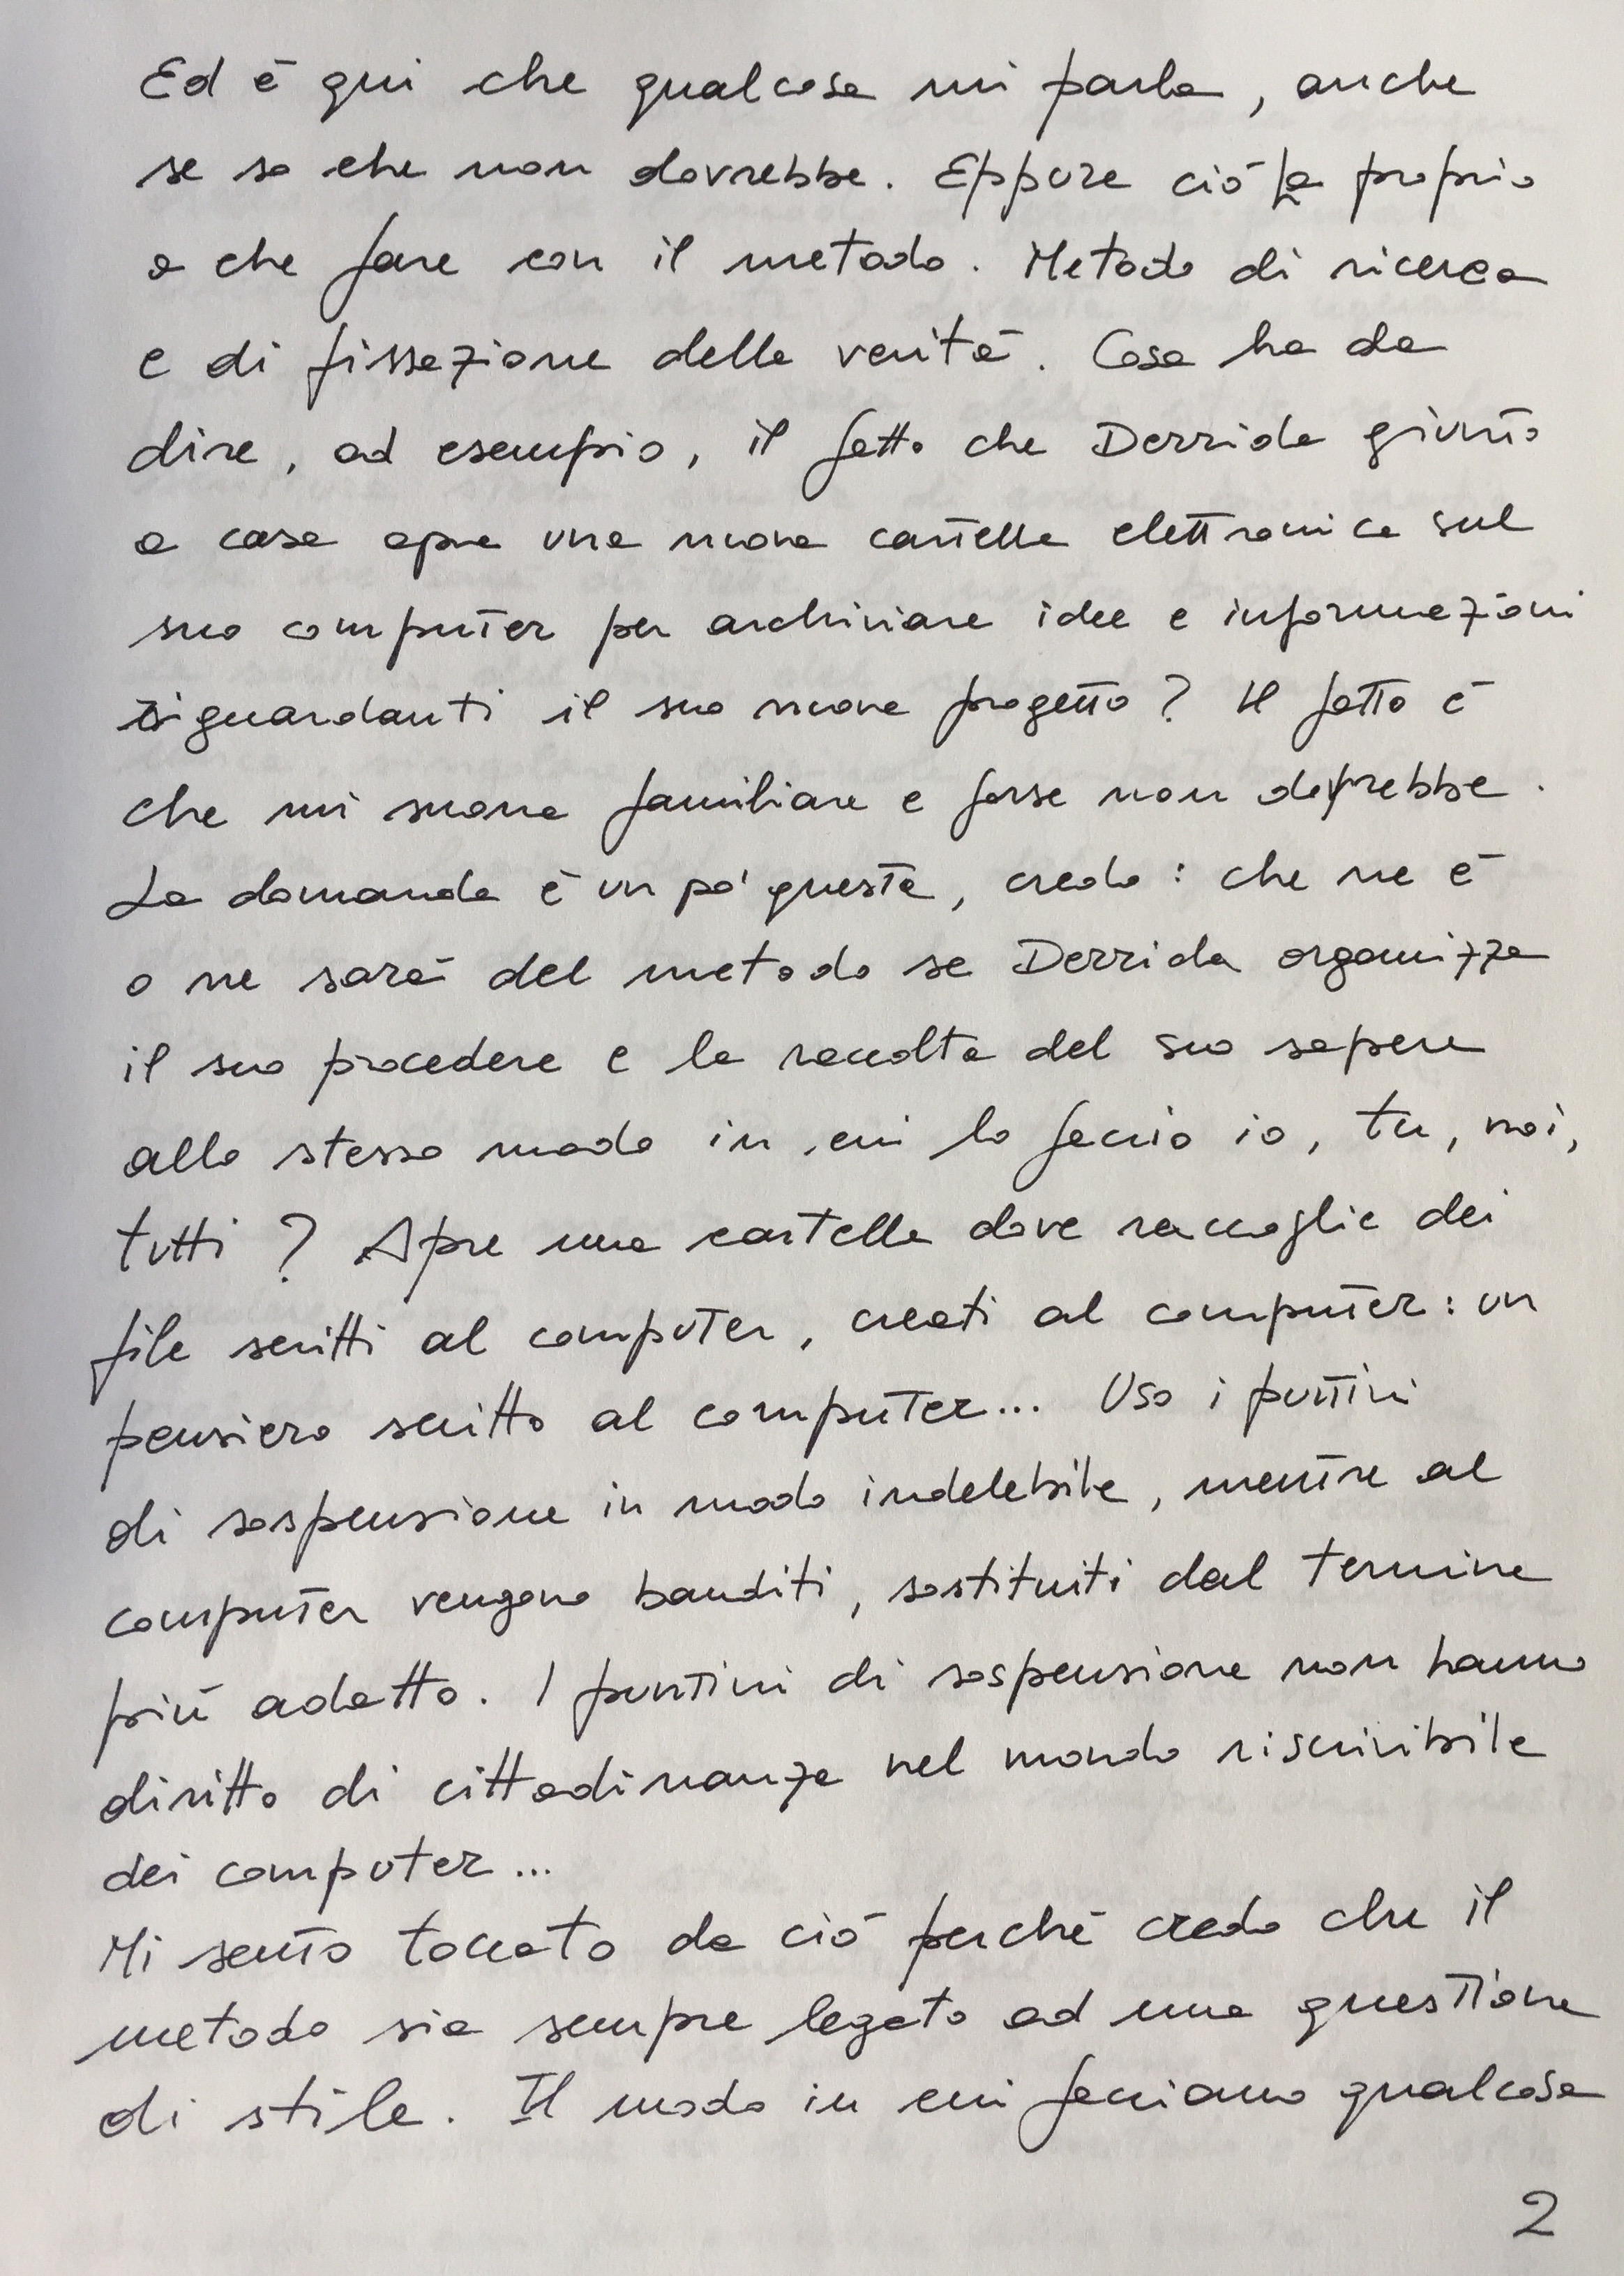 Ed è qui che qualcosa mi parla, anche
se so che non dovrebbe. Eppure ciò ha proprio
a che fare con il metodo. Metodo di ricerca
e di fissazione della verità. Cosa ha da
dire, ad esempio, il fatto che Derrida giunto
a casa apra una nuova cartella elettronica sul
suo computer per archiviare idee e informazioni
riguardanti il suo nuovo progetto? Il fatto è
che mi suona familiare e forse non dovrebbe.
La domanda è un po' questa, credo: che ne è
o ne sarà del metodo se Derrida organizza
il suo procedere e la raccolta del suo sapere
allo stesso modo in cui lo faccio io, tu, noi,
tutti? Apre una cartella dove raccoglie dei
file scritti al computer, creati al computer: un
pensiero scritto al computer... Uso i puntini
di sospensione in modo indelebile, mentre al
computer vengono banditi, sostituiti dal termine
più adatto. I puntini di sospensione non hanno
diritto di cittadinanza nel mondo riscrivibile
dei computer...
Mi sento toccato da ciò perché credo che il
metodo sia sempre legato ad una questione
di stile. Il modo in cui facciamo qualcosa
2